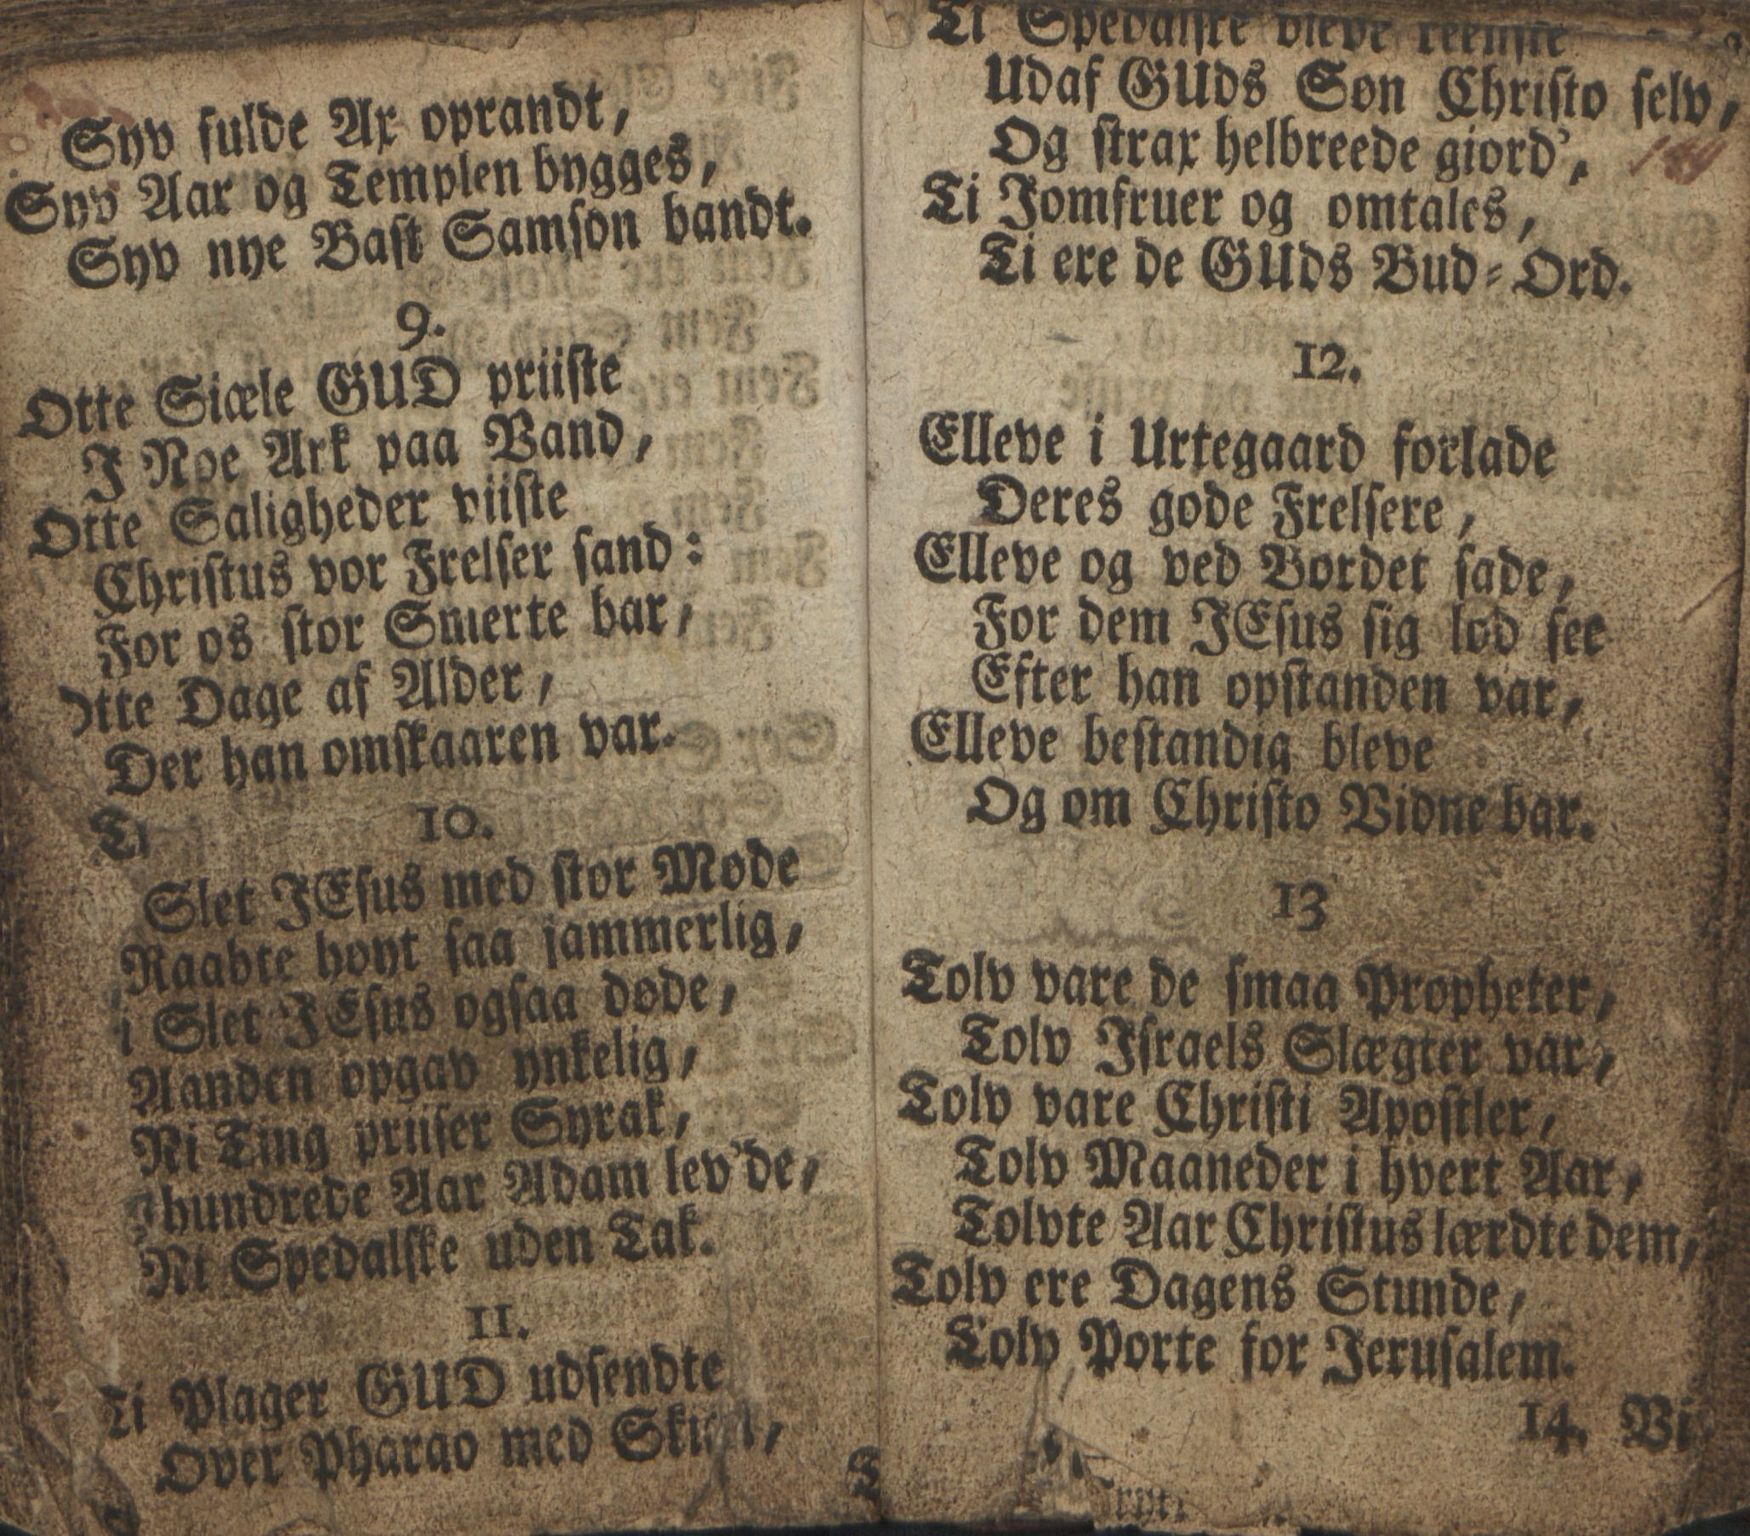 Syv fulde Ax oprandt,
Syv Aar og Templen bygges,
Syv nye Bast Samson bandt.
9.
Otte Siæle GUD priiste
I Noe Ark paa Vand,
Otte Saligheder viiste
Christus vor Frelser sand:
For os stor Smerte bar,
Otte Dage af Alder,
Der han omskaaren var.
10.
Slet JEsus med stor Møde
Raabte høyt saa jammerlig,
Slet JEsus ogsaa døde,
Aanden opgav ynkelig,
Ni Ting priiser Syrak,
hundrede Aar Adam lev'de,
Ni Spedalske uden Tak.
11.
Ti Plager GUD udsendte
Over Pharao med
Ti Spedalske bleve reenste
Udaf GUds Søn Christo selv,
Og strax helbreede giord',
Ti Jomfruer og omtales,
Ti ere de GUds Bud-Ord.
12.
Elleve i Urtegaard forlade
Deres gode Frelsere,
Elleve og ved Bordet sade,
For dem JEsus sig lod see
Efter han opstanden var,
Elleve bestandig bleve
Og om Christo Vidne bar.
13
Tolv vare de smaa Propheter,
Tolv Israels Slægter var,
Tolv vare Christi Apostler,
Tolv Maaneder i hvert Aar,
Tolvte Aar Christus lærdte dem,
Tolv ere Dagens Stunde,
Tolv Porte for Jerusalem.
14. Vi